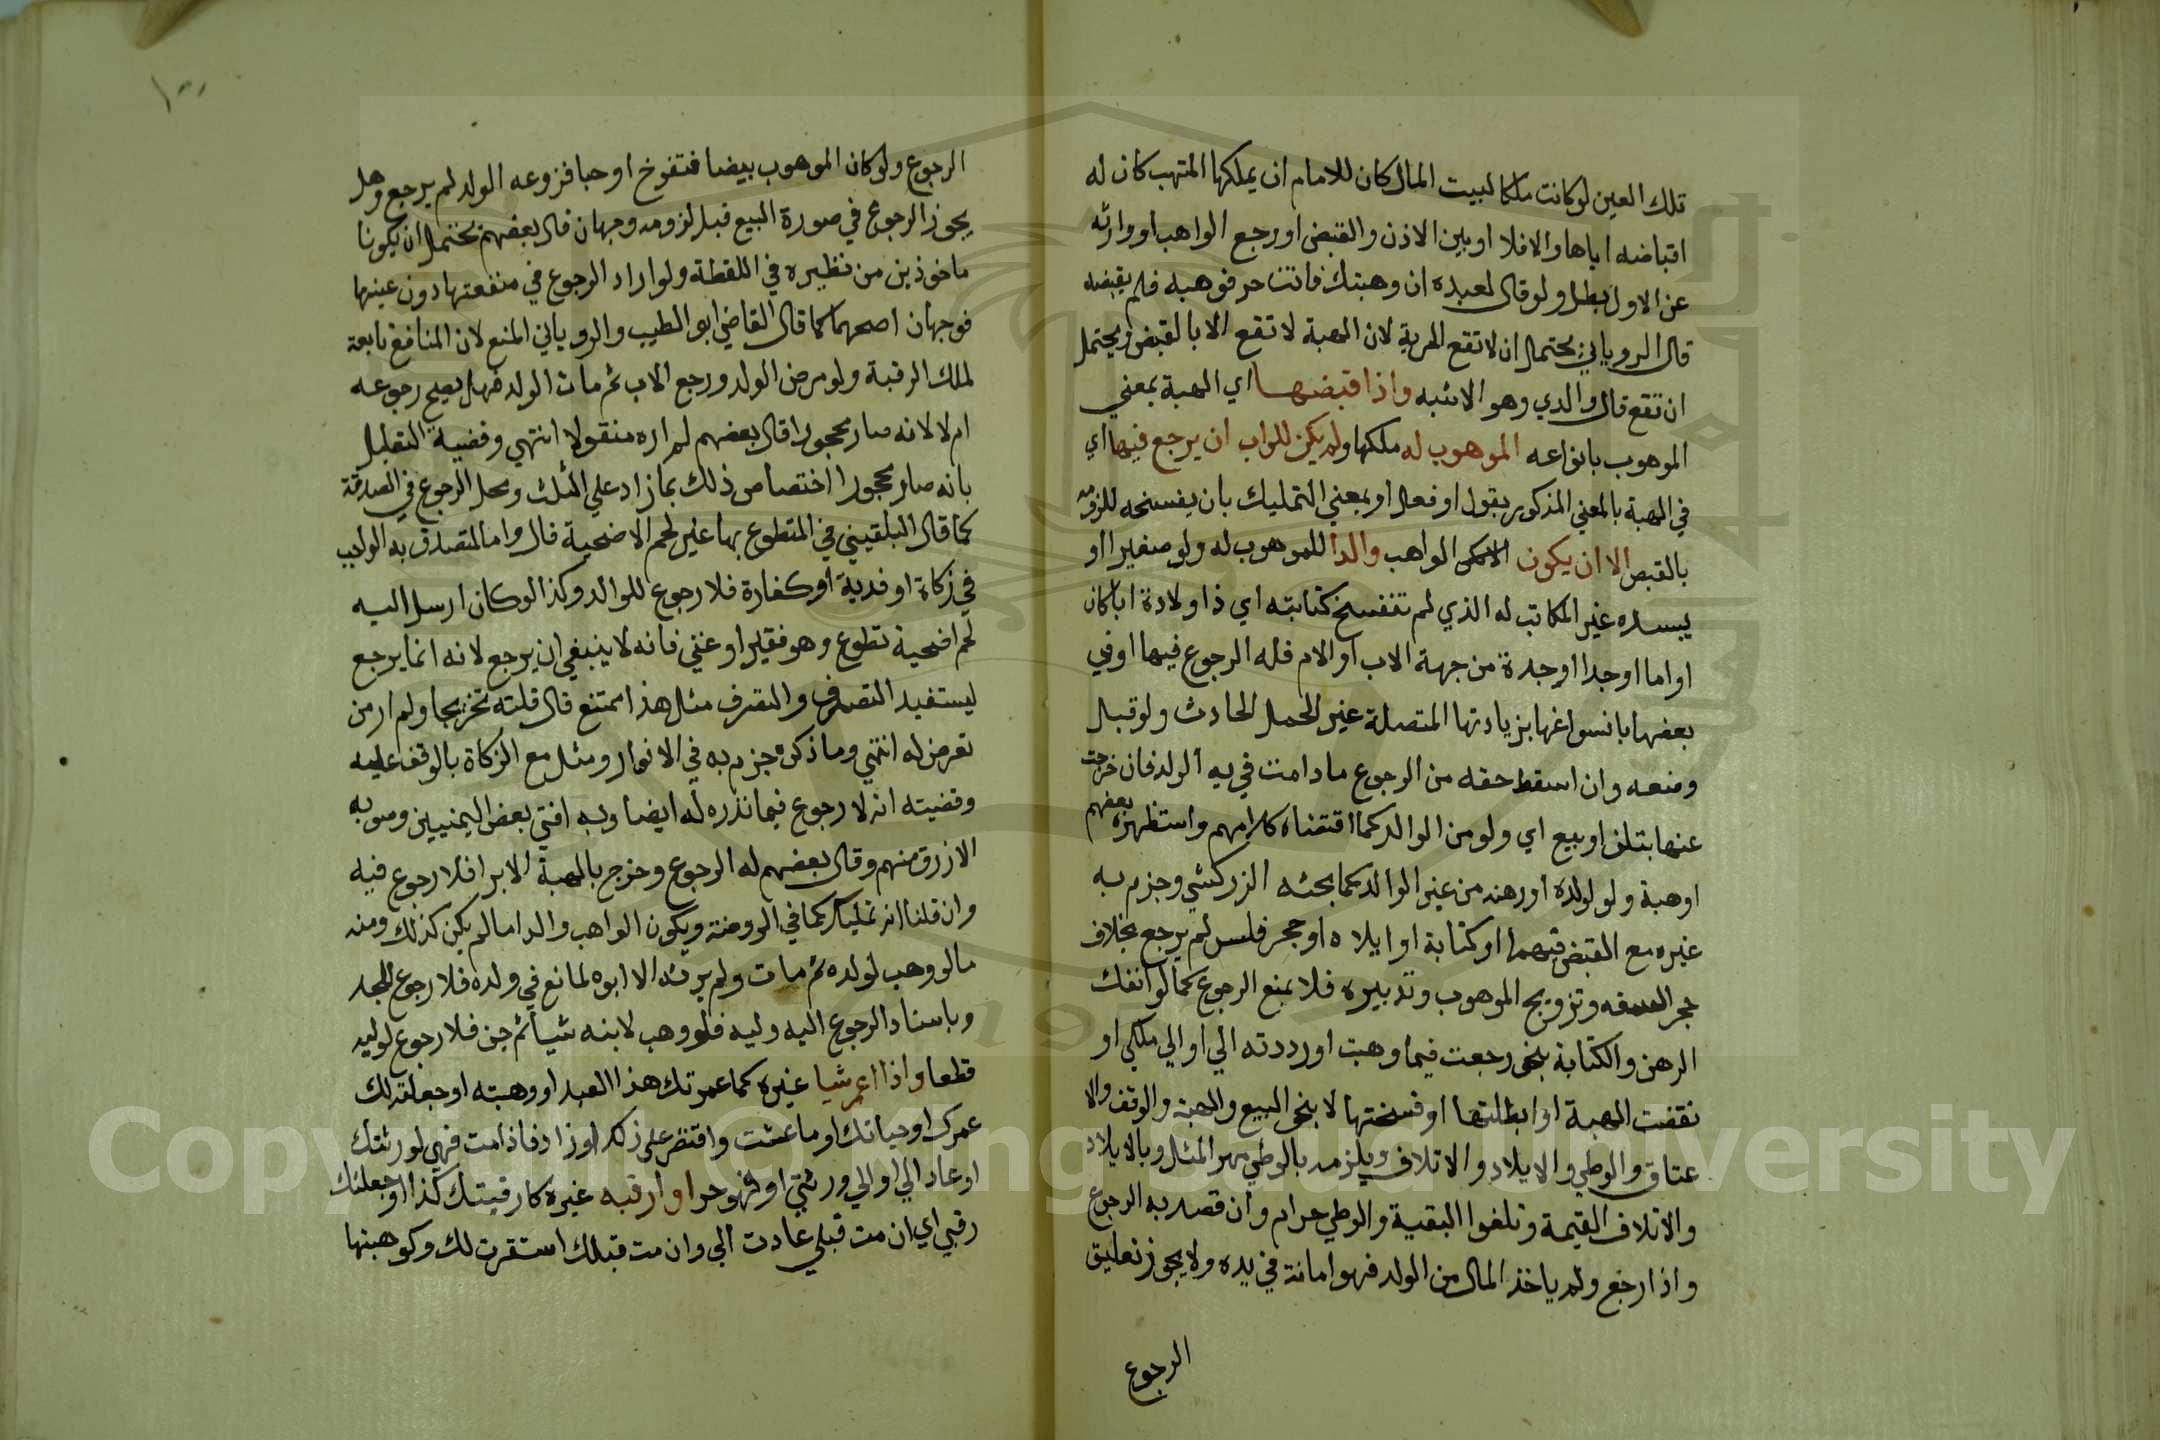 تلك العين لو كانت ملكا لبيت المال كان للامام ان يملكها المتهب كان له
اقباضه اياها والا فلا او بين الاذن والقبض او رجع الواهب او وارثه
عن الاول بطل ولو قال لعبده ان وهبتك فانت حر فوهبه فلم يقبضه
قال الروياني يحتمل ان لا تقع الحرية لان الهبة لا تقع الا بالقبض ويحتمل
ان تقع قال والدي وهو الاشبه واذا قبضها اي الهبة بمعني
الموهوب بانواعه الموهوب له ملكها ولم يكن للواهب ان يرجع فيها اي
في الهبة بالمعني المذكور بقول او فعل او بمعني التمليك بان يفسخه للزومه
بالقبض الا ان يكون الواهب والدا للموهوب له ولو صغيرا او
بيسده غير المكاتب له الذي لم تنفسخ كتابته اي ذا ولادة ابا كان
او اما او جدا او جدة من جهة الاب او الام فله الرجوع فيها او في
بعضها بانسواغها بزيادتها المتصلة غير الحمل الحادث ولو قبل
وضعه وان اسقط حقه من الرجوع ما دامت في يد الولد فان خرجت
عنها بتلف او بيع اي ولو من الوالد كما اقتضاه كلامهم واستظهره بعضهم
او هبة ولو لولده او رهنه من غير الوالد كما بحثه الزركشي وجزم به
غيره مع القبض فيهما او كتابة او ايلاد او حجر فلس لم يرجع بخلاف
حجر السفه وتزويج الموهوب وتدبيره فلا يمنع الرجوع كما لو انفك
الرهن والكتابة بنحو رجعت فيما وهبت او رددته الي او الي ملكي او
نقضت الهبة او ابطلتها او فسختها لا بنحو البيع والهبة والوقف والا
عتاق والوطي والايلاد والاتلاف ويلزمه بالوطي مهر المثل وبالايلاد
والاتلاف القيمة وتلغوا البقية والوطي حرام وان قصد به الرجوع
واذا رجع ولم ياخذ المال من الولد فهو امانة في يده ولا يجوز تعليق
الرجوع
١٠٠
الرجوع ولو كان الموهوب بيضا فتفرخ او حبا فزرعه الولد لم يرجع وهل
يجوز الرجوع في صورة البيع قبل لزومه وجهان قال بعضهم يحتمل ان يكونا
ماخوذين من نظيره في اللقطة ولو اراد الرجوع في منفعتها دون عينها
فوجهان اصحهما كما قال القاضي ابو الطيب والروياني المنع لان المنافع تابعة
لملك الرقبة ولو مرض الولد ورجع الاب ثم مات الولد فهل يصح رجوعه
ام لا لانه صار محجورا قال بعضهم لم اره منقولا انتهي وقضية التعليل
بانه صار محجورا اختصاص ذلك بما زاد علي الثلث ومحل الرجوع في الصدقة
كما قال البلقيني في المتطوع بها غير لحم الاضحية قال واما المتصدق به الواجب
في زكاة او فدية او كفارة فلا رجوع للوالد وكذا لو كان ارسل اليه
لحم اضحية تطوع وهو فقير او غني فانه لا ينبغي ان يرجع لانه انما يرجع
ليستفيد التصرف والتصرف مثل هذا ممتنع قال قلته تخريجا ولم ار من
تعرض له انتهي وما ذكره جزم به في الانوار ومثل مع الزكاة بالوقف عليه
وقضيته انه لا رجوع فيما نذره له ايضا وبه افتي بعض اليمنيين وصوبه
الازرق منهم وقال بعضهم له الرجوع وخرج بالهبة الابرا فلا رجوع فيه
وان قلنا انه تمليك كما في الروضة ويكون الواهب والدا ما لم يكن كذلك ومنه
ما لو وهب لولده ثم مات ولم يرثه الا ابوه لمانع في ولده فلا رجوع للجد
وباسناد الرجوع اليه وليه فلو وهب لابنه شيا ثم جن فلا رجوع لوليه
قطعا واذا اعمر شيا غيره كما عمرتك هذا العبد او وهبته او جعلته لك
عمرك او حياتك او ما عشت واقتصر على ذلك او زاد فاذا مت فهي لورثتك
او عاد الي او الي ورثتي او فهو حر او ارقبه غيره كارقبتك كذا او جعلتك
رقبي اي ان مت قبلي عادت الي وان مت قبلك استقرت لك وكوهبتها